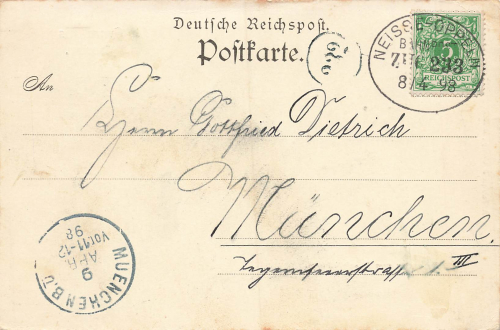 Deutsche Reichspost.
Postkarte.
NEISSE-OPPELN
BAHNPOST
ZUG 233
8/4 98
5
REICHSPOST
An
Herrn Gottfried Dietrich
München.
Tegernseerstrasse 1. III
MUENCHEN B.Z.
9
APR
Vor.11-12
98